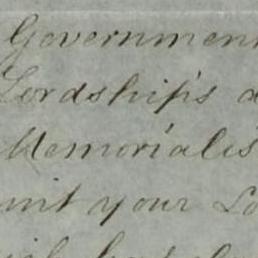 Governmen
Lordship's a
Memorialis
mit your Lo